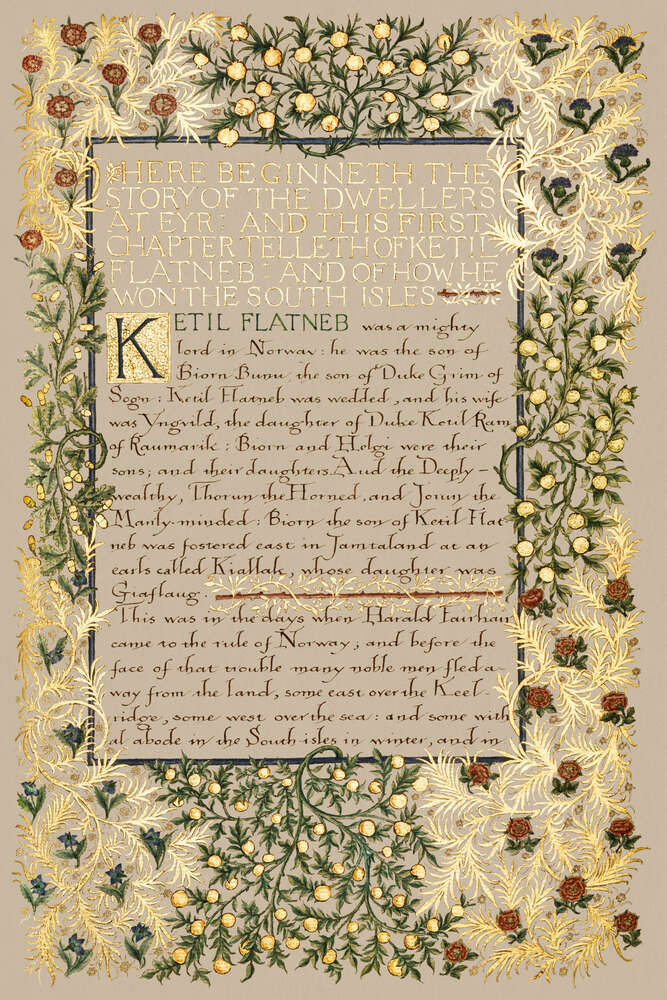 HERE BEGINNETH THE
STORY OF THE DWELLERS
AT EYR: AND THIS FIRST
CHAPTER TELLETH OF KETIL
FLATNEB: AND OF HOW HE
WON THE SOUTH ISLES
KETIL FLATNEB was a mighty
lord in Norway: he was the son of
Biorn Bunu, the son of Duke Grim of
Sogn: Ketil Flatneb was wedded, and his wife
was Yngvild, the daughter of Duke Ketil Ram
of Raumarik: Biorn and Helgi were their
sons; and their daughters Aud the Deeply-
wealthy, Thorun the Horned, and Jorun the
Manly-minded: Biorn the son of Ketil Flat
neb was fostered east in Jamtaland at an
earls called Kiallak, whose daughter was
Giaflaug.
This was in the days when Harald Fairhair
came to the rule of Norway; and before the
face of that trouble many noble men fled a-
way from the land, some east over the Keel-
ridge, some west over the sea: and some with
al abode in the South-isles in winter, and in